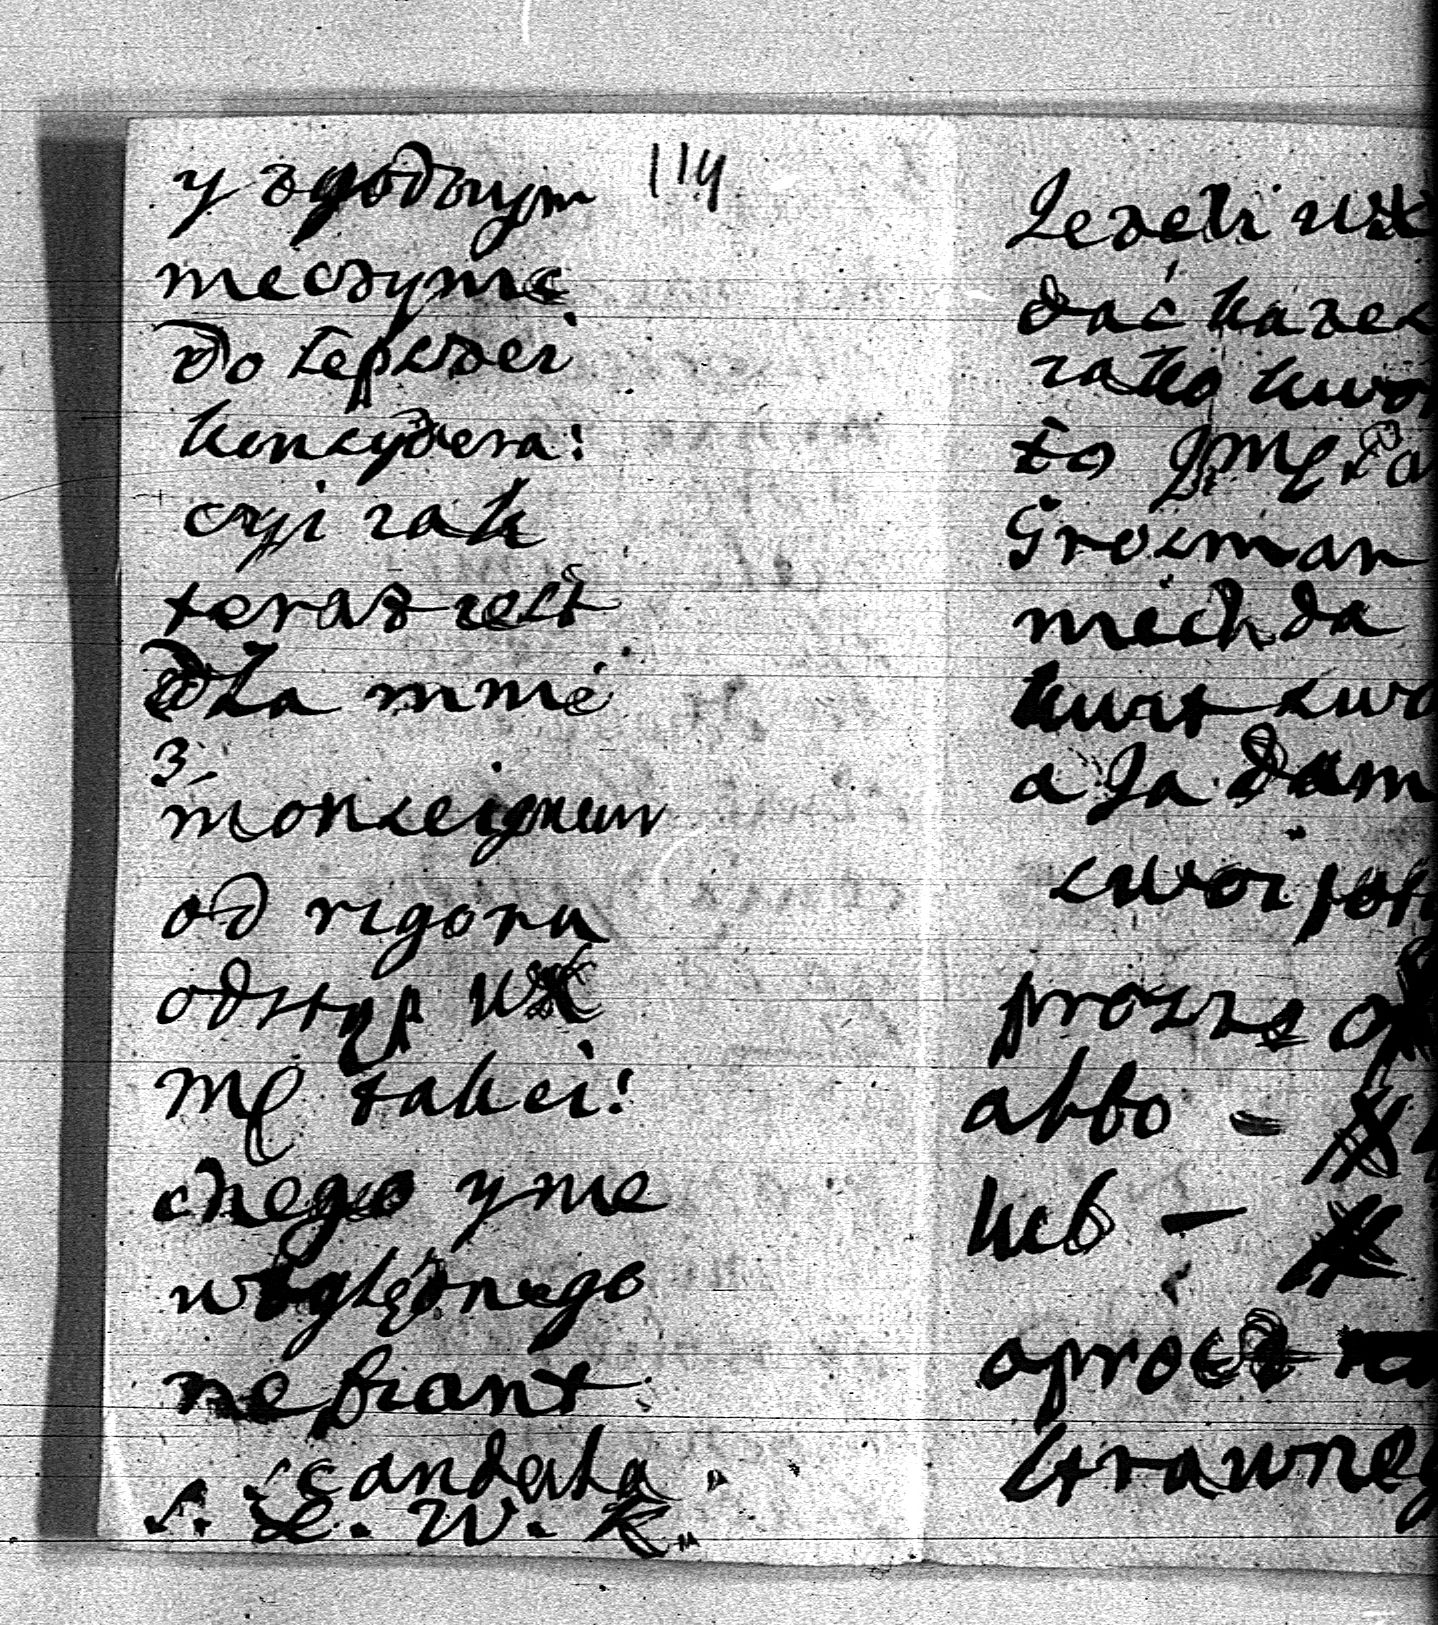 y zgodnym
114
nieczyinie
do lepszei
konsydera:
cyi iak
teraz iest
dla mnie
3.
monseigneur
od rigoru
odstąp
Mę takei:
chego y nie
względnego
ne fiant
scandala.
S. L. W. K.
Jezeli
dać kazes
iako kwo
to Jmę
Grosman
niech da
kwit swo
a Ja dam
swoi pot
proszę
albo -
lub -
oprócz
strawneg